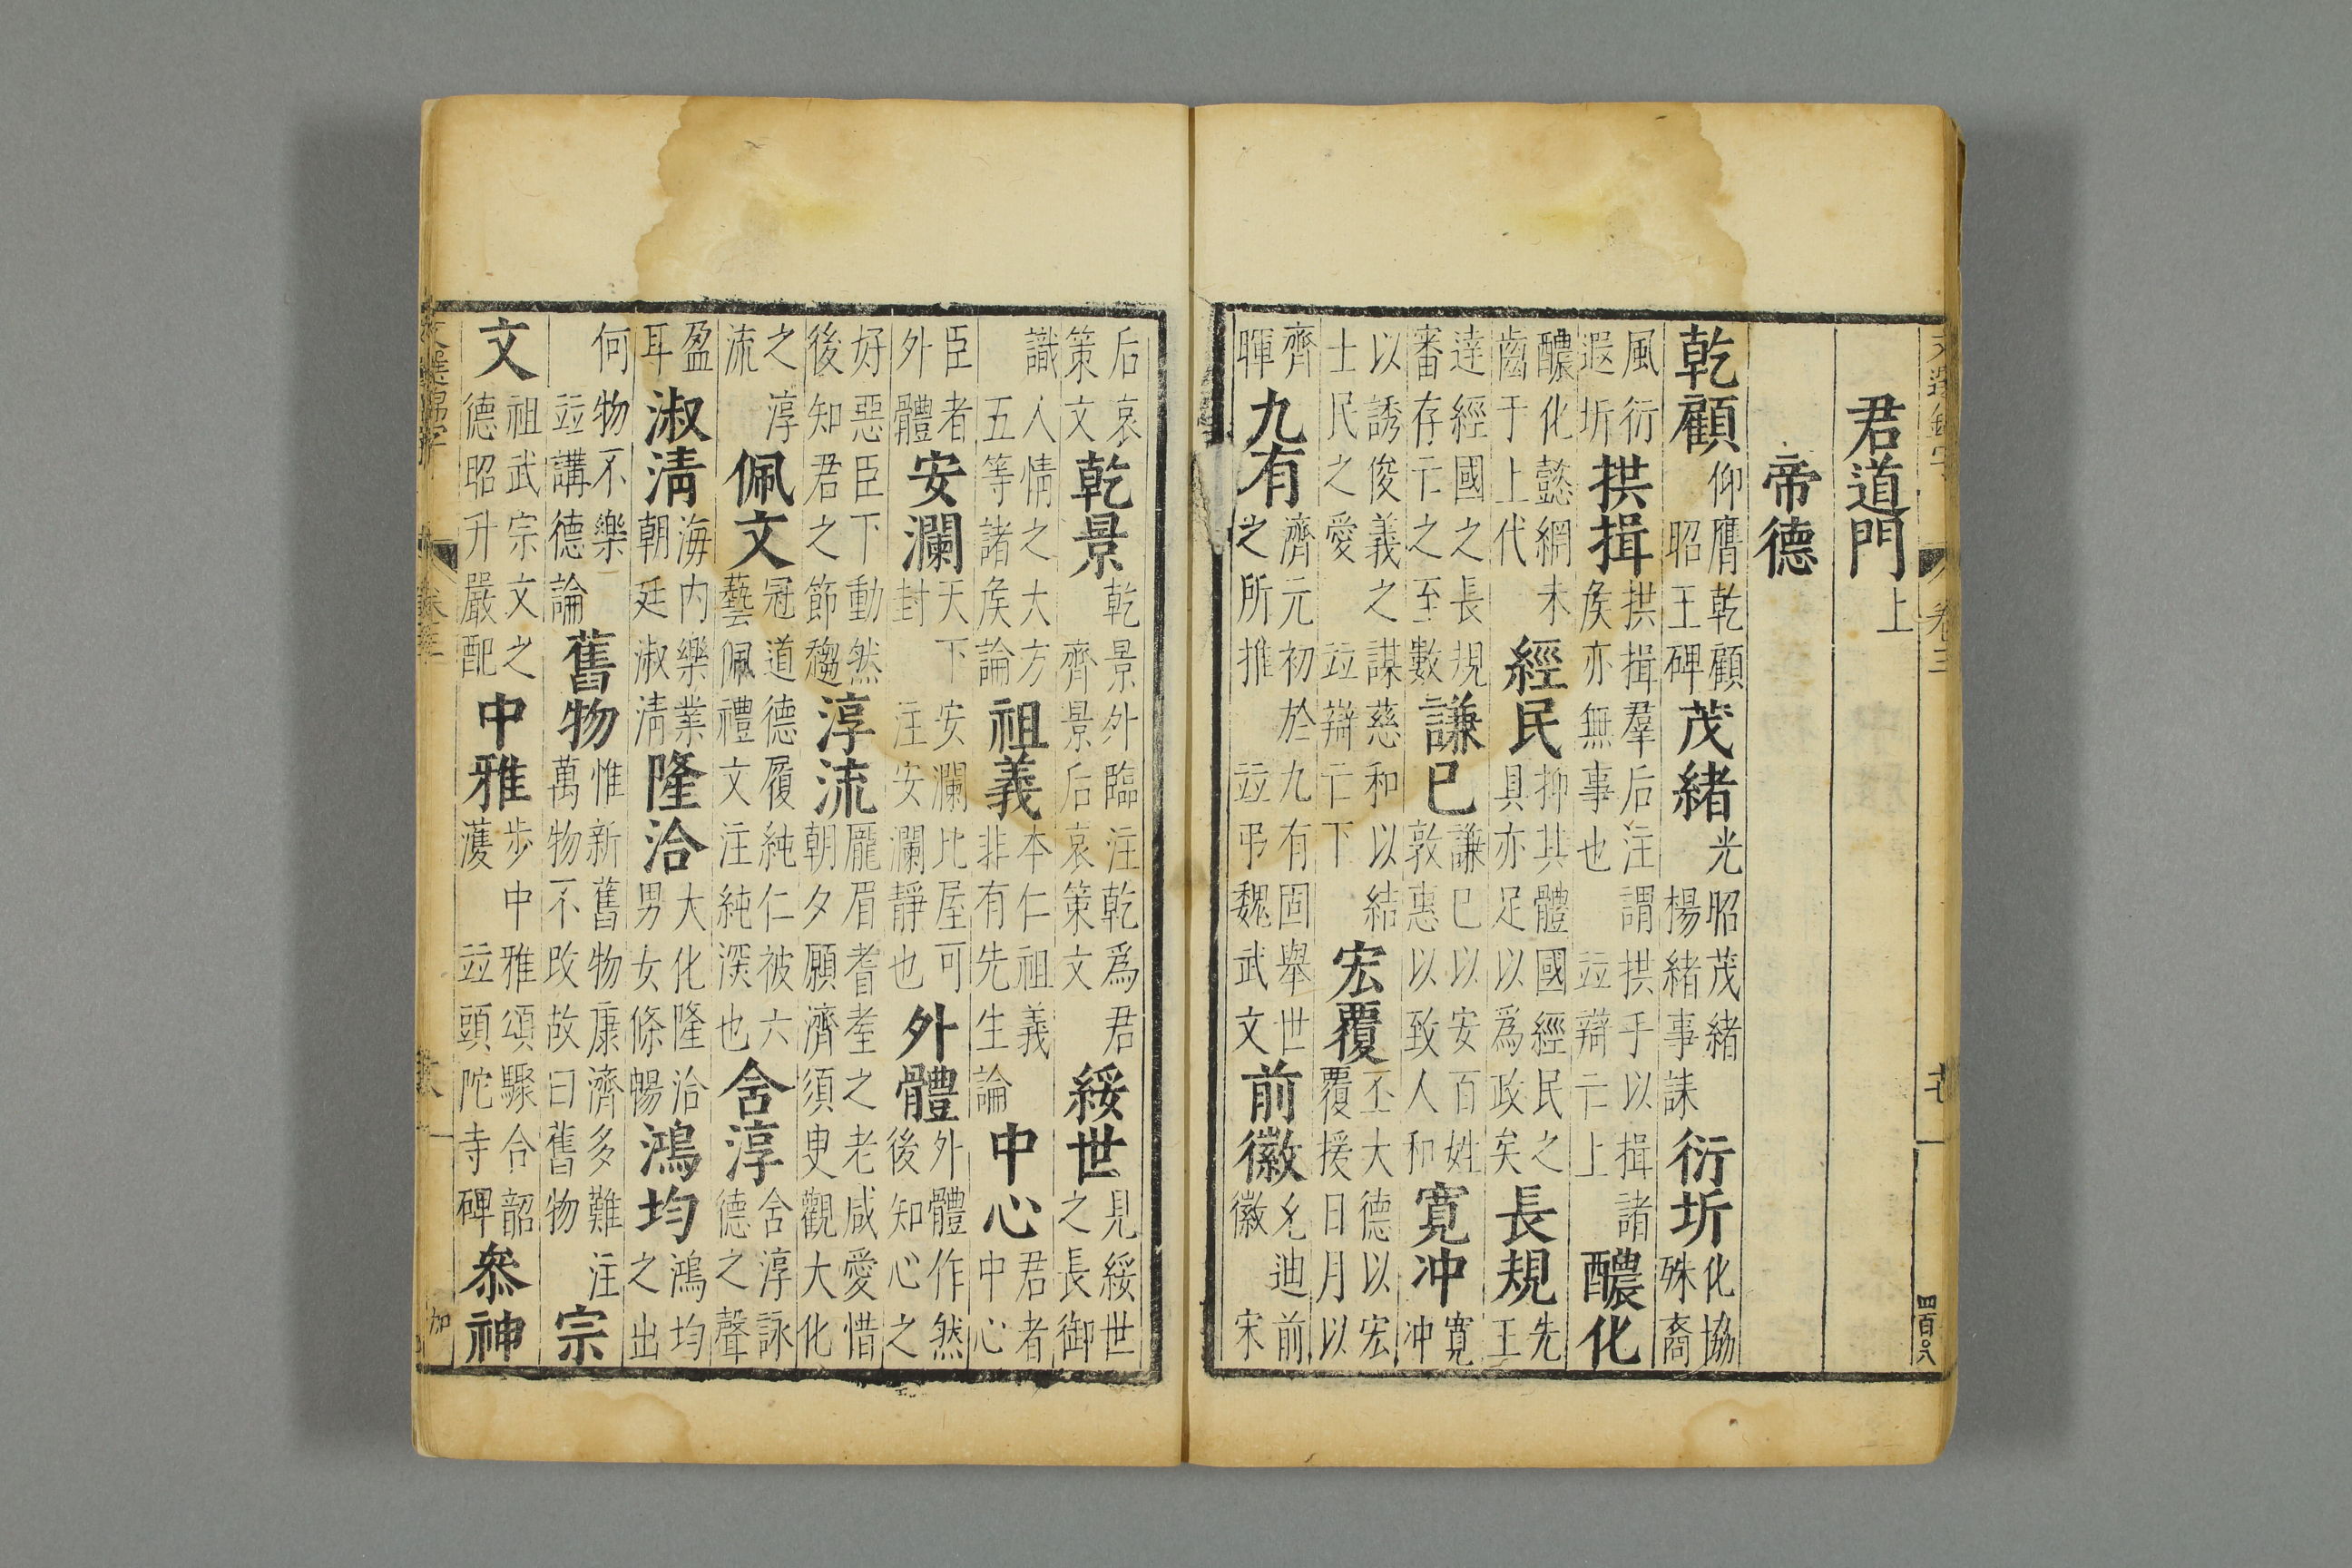 文選錦字 卷三 四百〇八
君道門上
帝德
乾顧仰膺乾顧昭王碑茂緒光昭茂緒楊緒事誄衍圻化協殊裔
風衍遐圻拱揖拱揖羣后注謂拱手以揖諸侯亦無事也竝辯亡上醲化
醲化懿網未齒于上代經民抑其體國經民之具亦足以爲政矣長規先王
達經國之長規審存亡之至數謙已謙已以安百姓敦惠以致人和寛冲寛冲
以誘俊義之謀慈和以結士民之愛竝辯亡下宏覆丕大德以宏覆援日月以
齊暉九有濟元初於九有固舉世之所推竝弔魏武文前徽允迪前徽宋
后哀策文乾景乾景外臨注乾爲君齊景后哀策文綏世見綏世之長御
識人情之大方五等諸侯論祖義本仁祖義非有先生論中心君者中心
臣者外體安瀾天下安瀾比屋可封注安瀾靜也外體外體作然後知心之
好惡臣下動然後知君之節趨淳流厖眉耆耋之老咸愛惜朝夕願濟須臾觀大化
之淳流佩文冠道德履純仁被六藝佩禮文注純深也含淳含淳詠德之聲
盈耳淑清海内樂業朝廷淑清隆洽大化隆洽男女條暢鴻均鴻均之出
何物不樂竝講德論舊物惟新舊物康濟多難注萬物不改故曰舊物宗
文祖武宗文之德昭升嚴配中雅步中雅頌驟合韶濩竝頭陀寺碑叅神
文選錦字 卷三